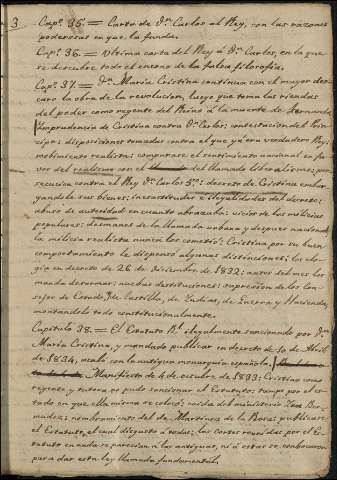 3
Cap.º 35.º = Carta de D.n Carlos al Rey, con las razones
poderosas en que la funda.
Cap.º 36. = Ultima carta del Rey á D.n Carlos, en la que
se descubre todo el encono de la falsa filosofía.
Cap.º 37. = D.ña María Cristina continúa con el mayor des-
caro la obra de la revolucion, luego que toma las riendas
del poder como regente del Reino á la muerte de Fernando,
imprudencia de Cristina contra D.n Carlos; contestacion del Prin-
cipe; disposiciones tomadas contra el que ya era verdadero Rey;
movimiento realista; comparase el sentimiento nacional en fa-
vor del realismo con el del llamado liberalismo; per-
secucion contra el Rey D.n Carlos 5.º; decreto de Cristina embar-
gandole sus bienes; inexactitudes é ilegalidades del decreto;
abuso de autoridad en cuanto abrazaba; vicios de las milicias
populares; desmanes de la llamada urbana y despues nacional;
la milicia realista nunca los cometió; Cristina por su buen
comportamiento le dispensó algunas distinciones; las elo-
gia en decreto de 26 de Diciembre de 1832; antes del mes las
manda desarmar; muchas destituciones; supresion de los Con-
sejos de Estado, de Castilla, de Indias, de Guerra y Hacienda,
montandolo todo constitucionalmente.
Capitulo 38. = El Estatuto R.l ilegalmente sancionado por D.ña
María Cristina, y mandado publicar en decreto de 10 de Abril
de 1834, acaba con la antigua monarquía española;
Manifiesto de 4 de octubre de 1833; Cristina como
regente y tutora no pudo sancionar el Estatuto; tampoco por el es-
tado en que ella misma se colocó; caida del ministerio Zea Ber-
mudez; nombramiento del de Martinez de la Rosa; publicase
el Estatuto, el cual disgusta á todos; las cortes reunidas por el Es-
tatuto en nada se parecian á las antiguas, ni á estas se convocaron
para dar esta ley llamada fundamental.